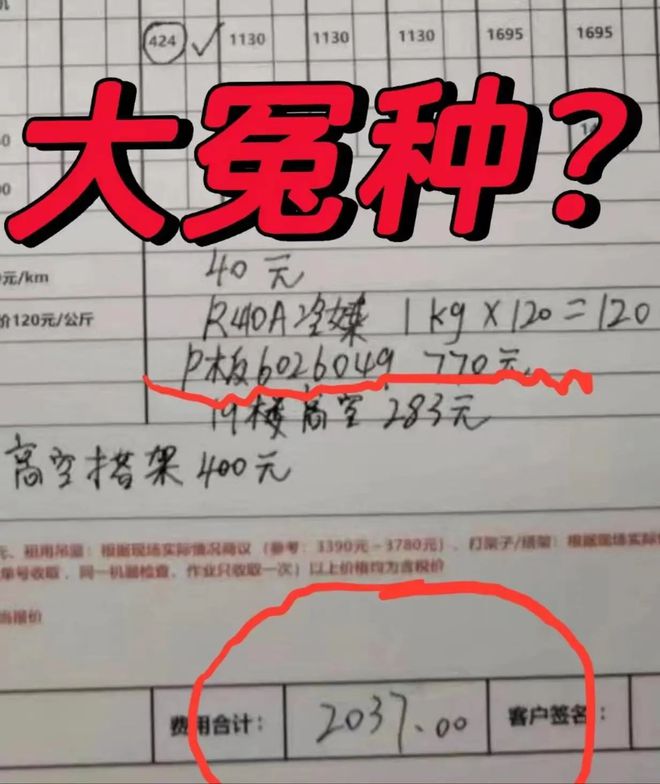 424 1130 1130 1130 1695 1695
大冤种?
元/km 40元
价120元/公斤 R40A冷媒 1kg×120=120
P板6026049 770元
19楼高空 283元
高空搭架400元
元、租用吊篮:根据现场实际情况商议(参考:3390元-3780元)、打架子/搭架:根据现场实际
单号收取,同一机器检查、作业只收取一次)以上价格均为含税价
当报价
费用合计: 2037.00 客户签名: